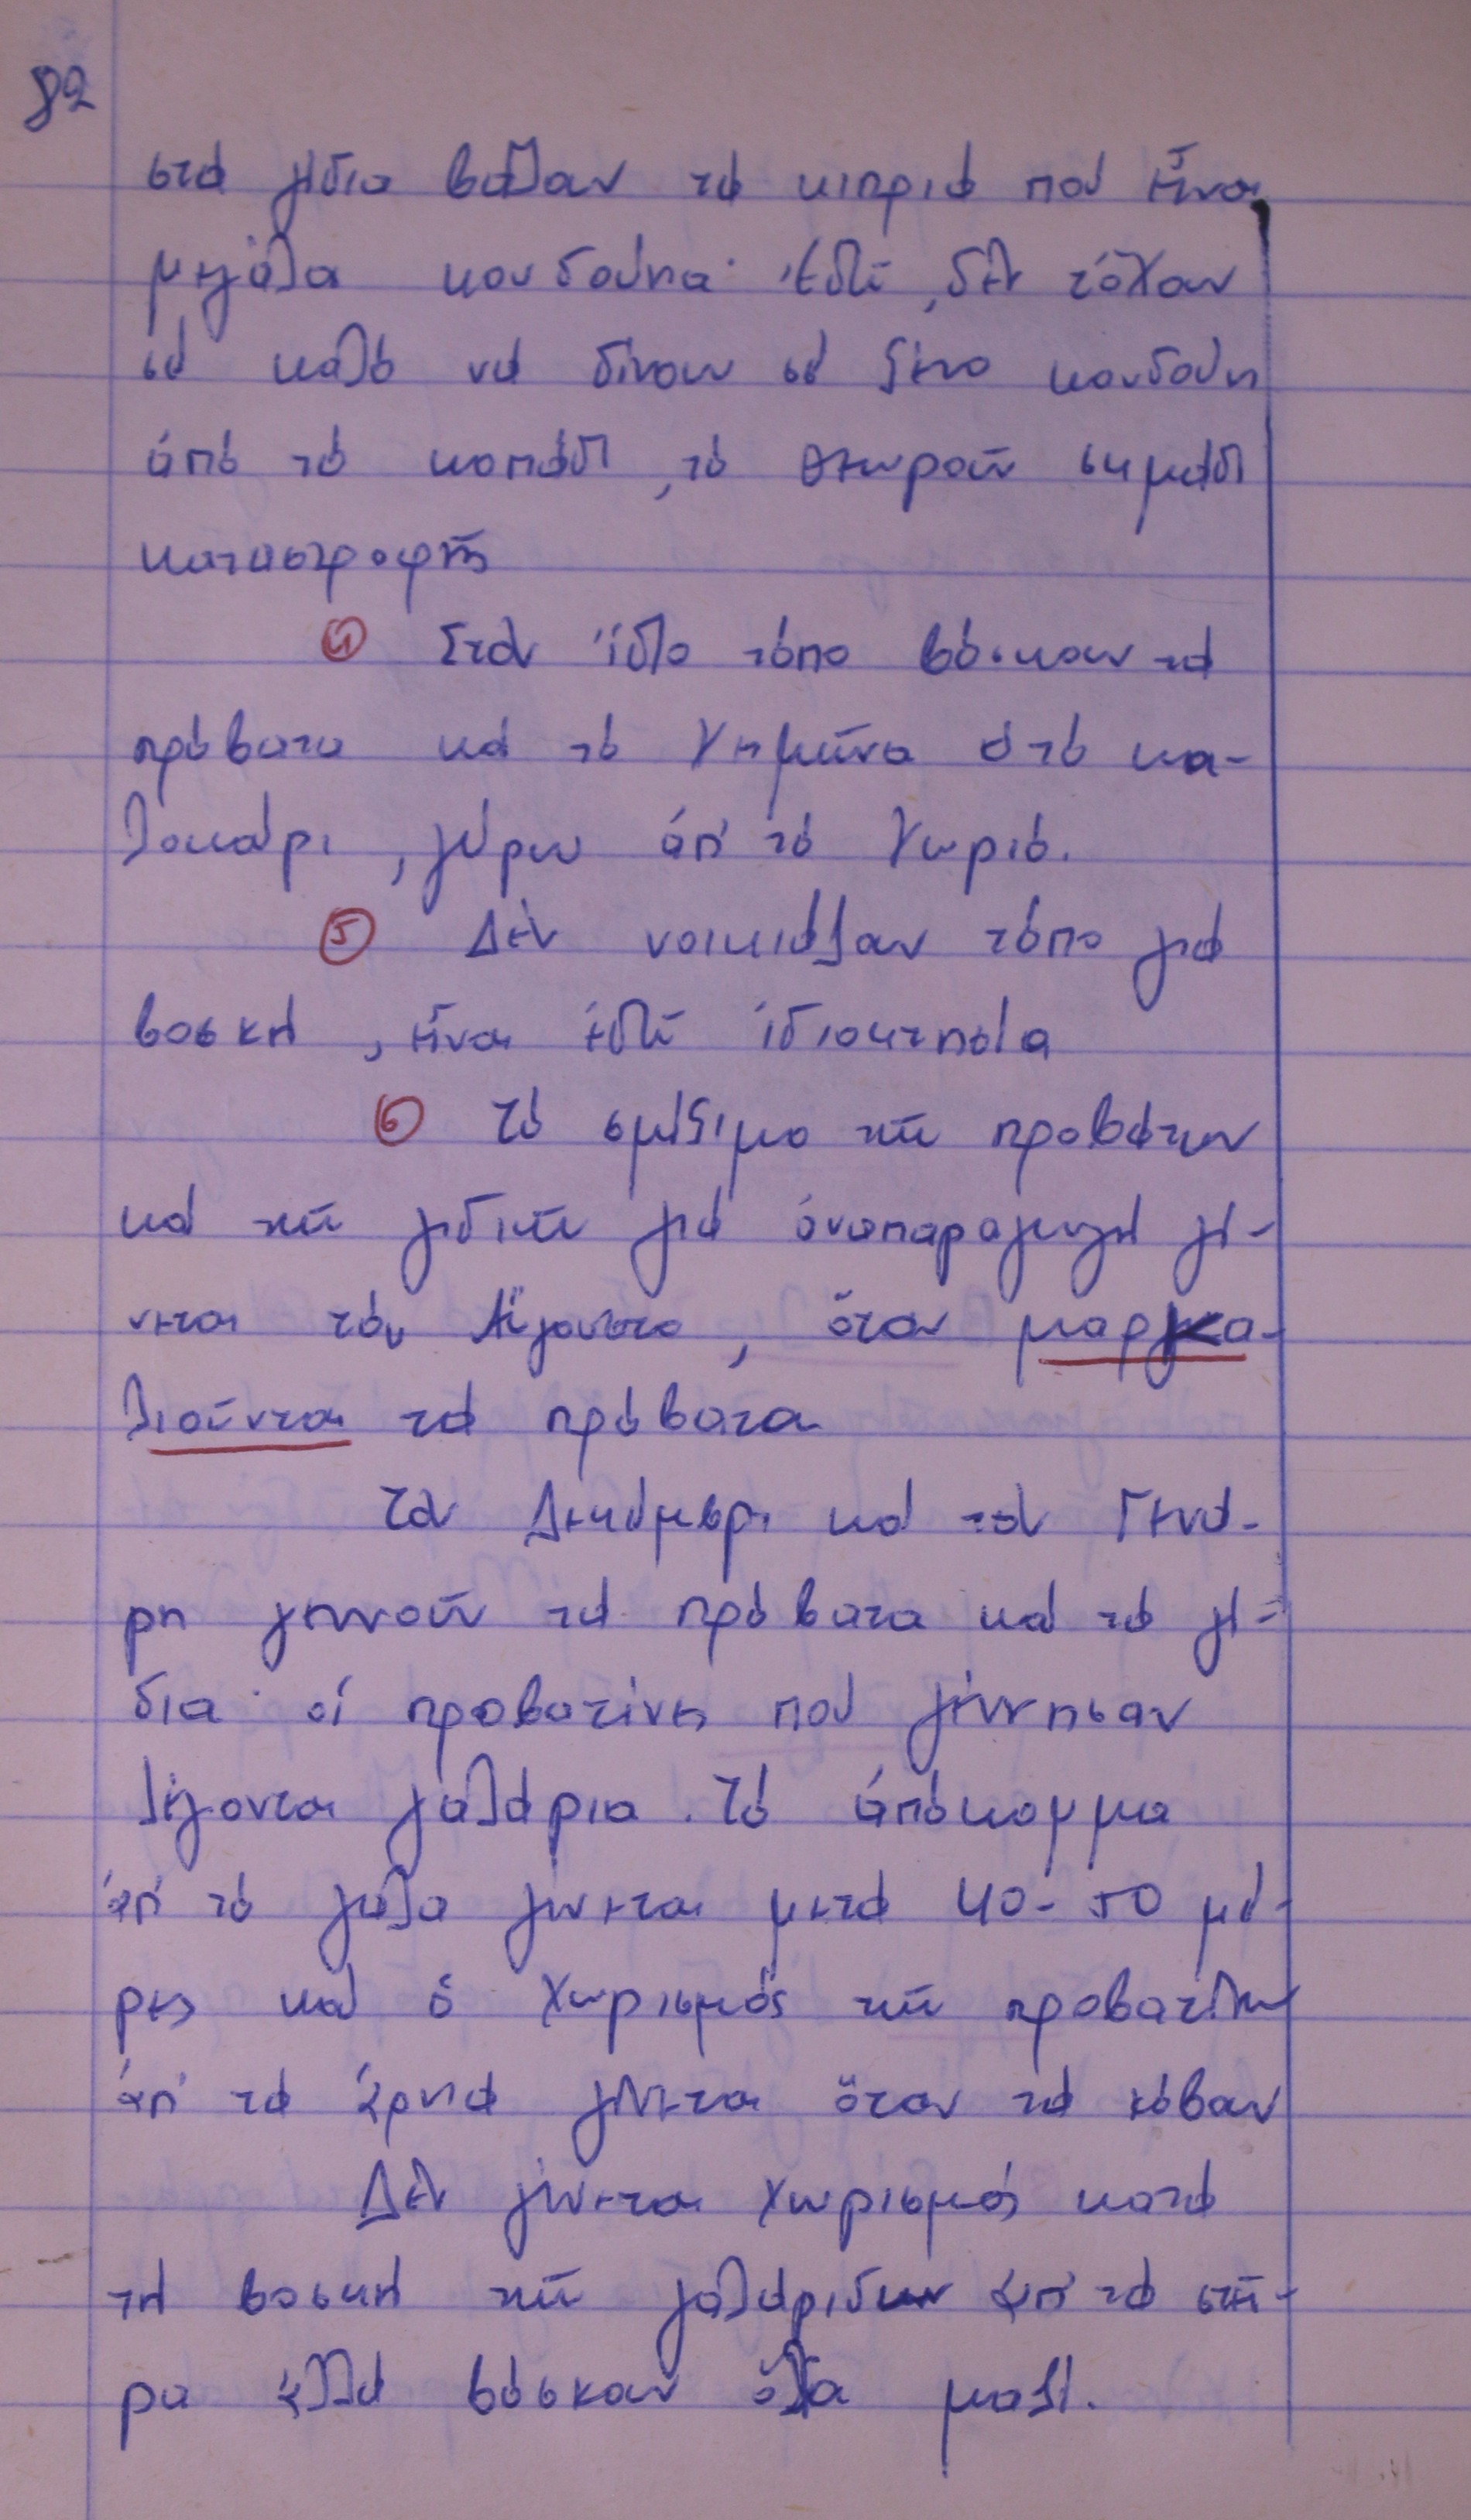 82
στά γίδια βάλαν τά κιπριά πού εἶναι
μεγάλα κουδούνια· ἐδῶ, δέν τὄχουν
σέ καλό νά δίνουν σέ ξένο κουδούνι
ἀπό τό κοπάδι, τό θεωροῦν σημάδι
καταστροφῆς
④ Στόν ἴδιο τόπο βόσκουν τά
πρόβατα καί τό χειμῶνα στό κα-
λοκαίρι, γύρω ἀπ' τό χωριό.
⑤ Δέν νοικιάζαν τόπο γιά
βοσκή, εἶναι ἐδῶ ἰδιοκτησία
⑥ Τό σμίξιμο τῶν προβάτων
καί τῶν γιδιῶν γιά ἀναπαραγωγή γί-
νεται τόν Αὔγουστο, ὅταν μαρκα-
λιοῦνται τά πρόβατα
Τόν Δεκέμβρη καί τόν Γενά-
ρη γεννοῦν τά πρόβατα καί τά γί-
δια· οἱ προβατίνες πού γέννησαν
λέγονται γαλάρια. Τό ἀπόκομμα
ἀπ' τό γάλα γίνεται μετά 40-50 μέ-
ρες καί ὁ χωρισμός τῶν προβατίνων
ἀπ' τά ἀρνιά γίνεται ὅταν τά κόβαν
Δέν γίνεται χωρισμός κατά
τή βοσκή τῶν γαλάριδων ἀπ' τά στεῖ-
ρα ἀλλά βόσκαν ὅλα μαζί.